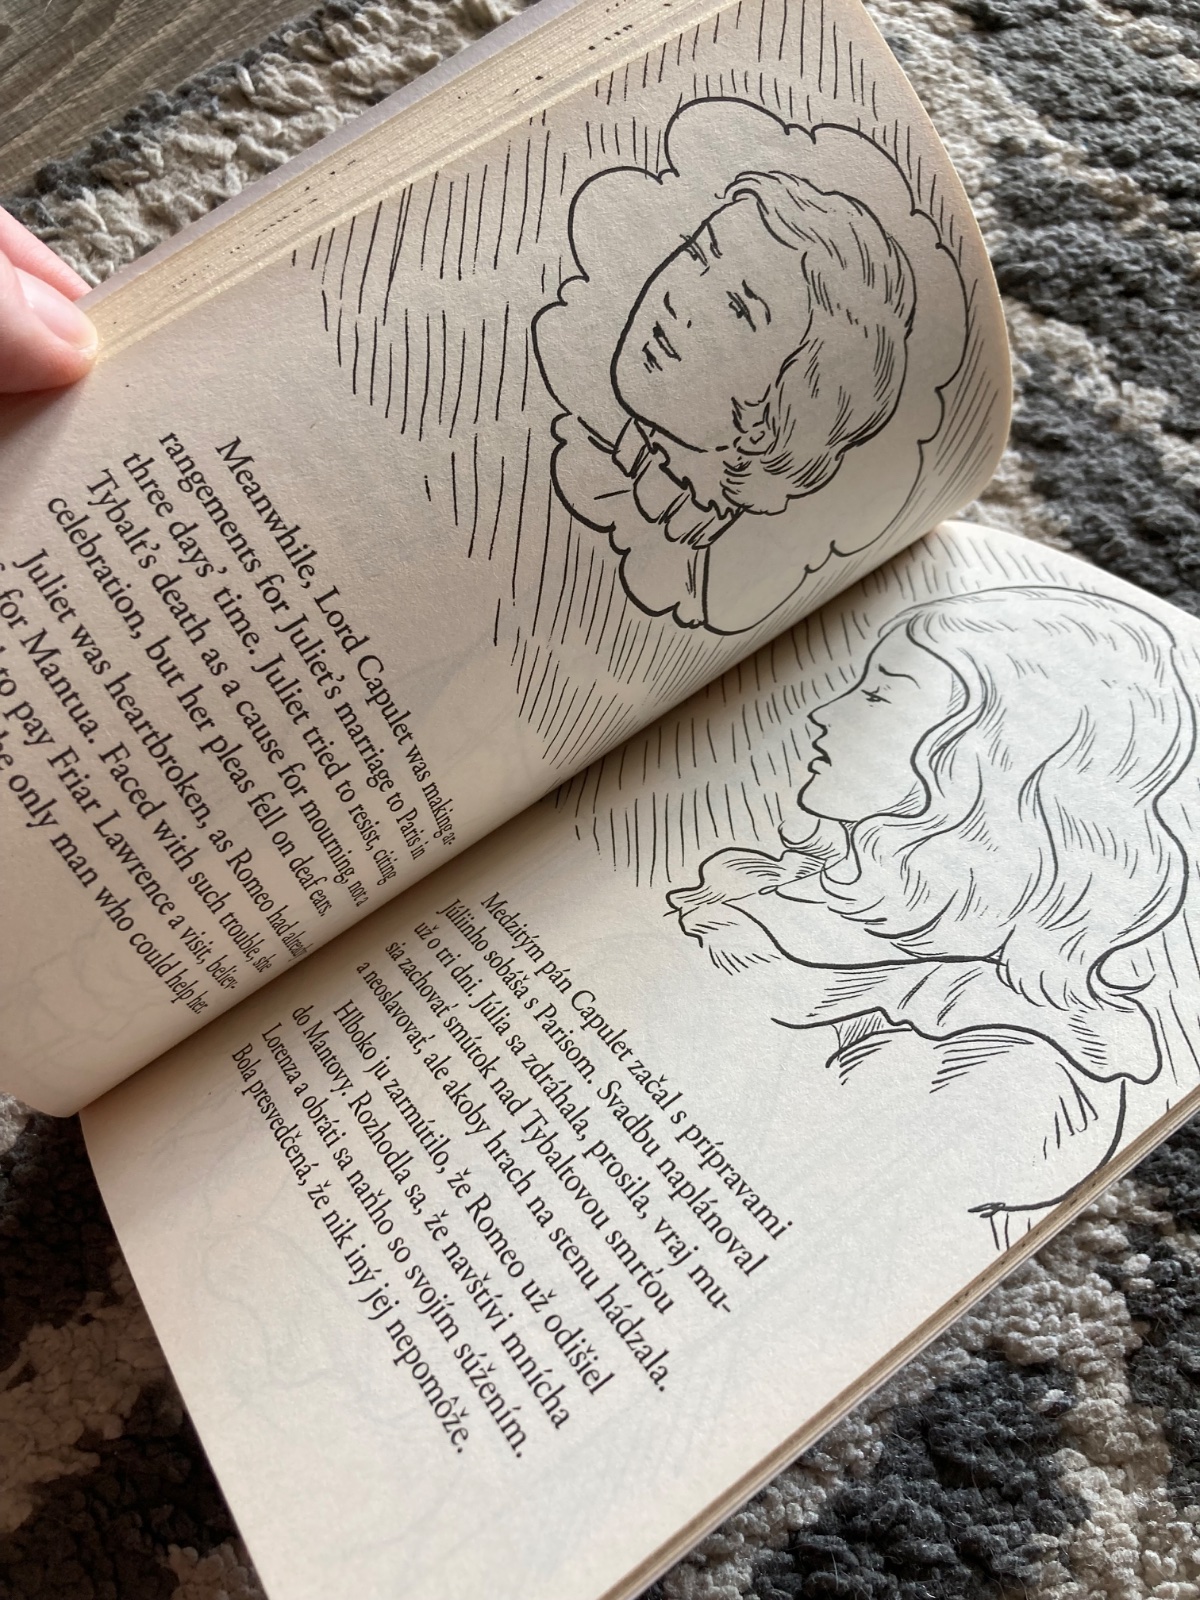 Meanwhile, Lord Capulet was making ar-
rangements for Juliet's marriage to Paris in
three days' time. Juliet tried to resist, citing
Tybalt's death as a cause for mourning, not a
celebration, but her pleas fell on deaf ears.
Juliet was heartbroken, as Romeo had already
for Mantua. Faced with such trouble, she
to pay Friar Lawrence a visit, believ-
only man who could help her.
Medzitým pán Capulet začal s prípravami
Júliinho sobáša s Parisom. Svadbu naplánoval
už o tri dni. Júlia sa zdráhala, prosila, vraj mu-
sia zachovať smútok nad Tybaltovou smrťou
a neoslavovať, ale akoby hrach na stenu hádzala.
Hlboko ju zarmútilo, že Romeo už odišiel
do Mantovy. Rozhodla sa, že navštívi mnícha
Lorenza a obráti sa naňho so svojím súžením.
Bola presvedčená, že nik iný jej nepomôže.